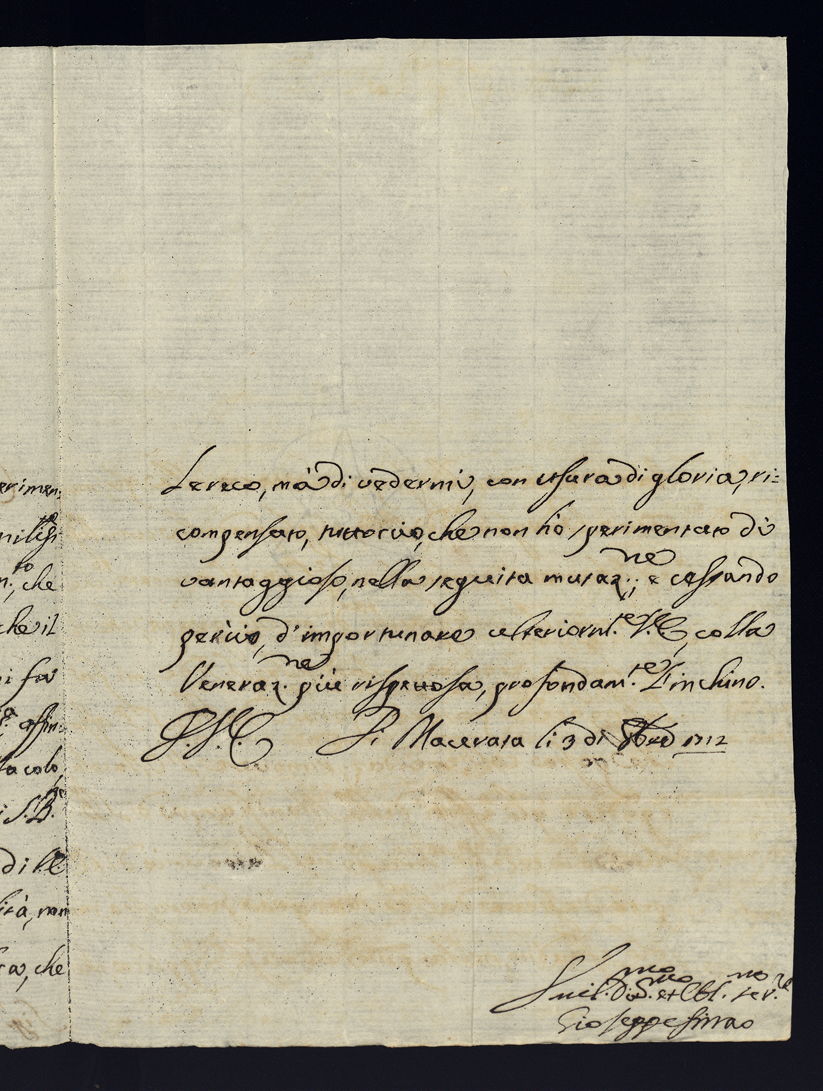 erimen:
che
che il
ni fa
affin:
ta colo,
di S. B.ne
di V.E.
lità, non
ra, che
Lereco, mà di vedermi, con usura di gloria, ri=
compensato, tuttociò, che non hò sperimentato di
vantaggioso, nella seguita mutaz.ne; e cessando
perciò, d'importunare ulteriorm.te V.E., colla
Veneraz.ne più rispettosa, profondam.te L'inchino.
D. V. E. Di Macerata li 3 di 1712
Umil.mo Div.mo et Obl.mo ser.re
Gioseppe